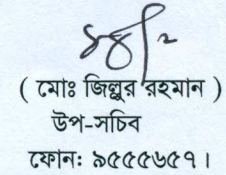 ( মোঃ জিল্লুর রহমান )
উপ-সচিব
ফোন: ৯৫৫৫৬৫৭।